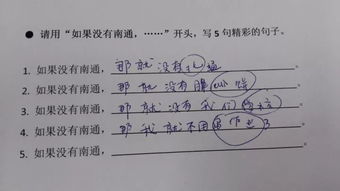 ● 请用“如果没有南通，……”开头，写 5 句精彩的句子。
1. 如果没有南通，那就没有北通。
2. 如果没有南通，那就没有脆饼。
3. 如果没有南通，那就没有我们学校。
4. 如果没有南通，那我就不用写作业了
5. 如果没有南通，。